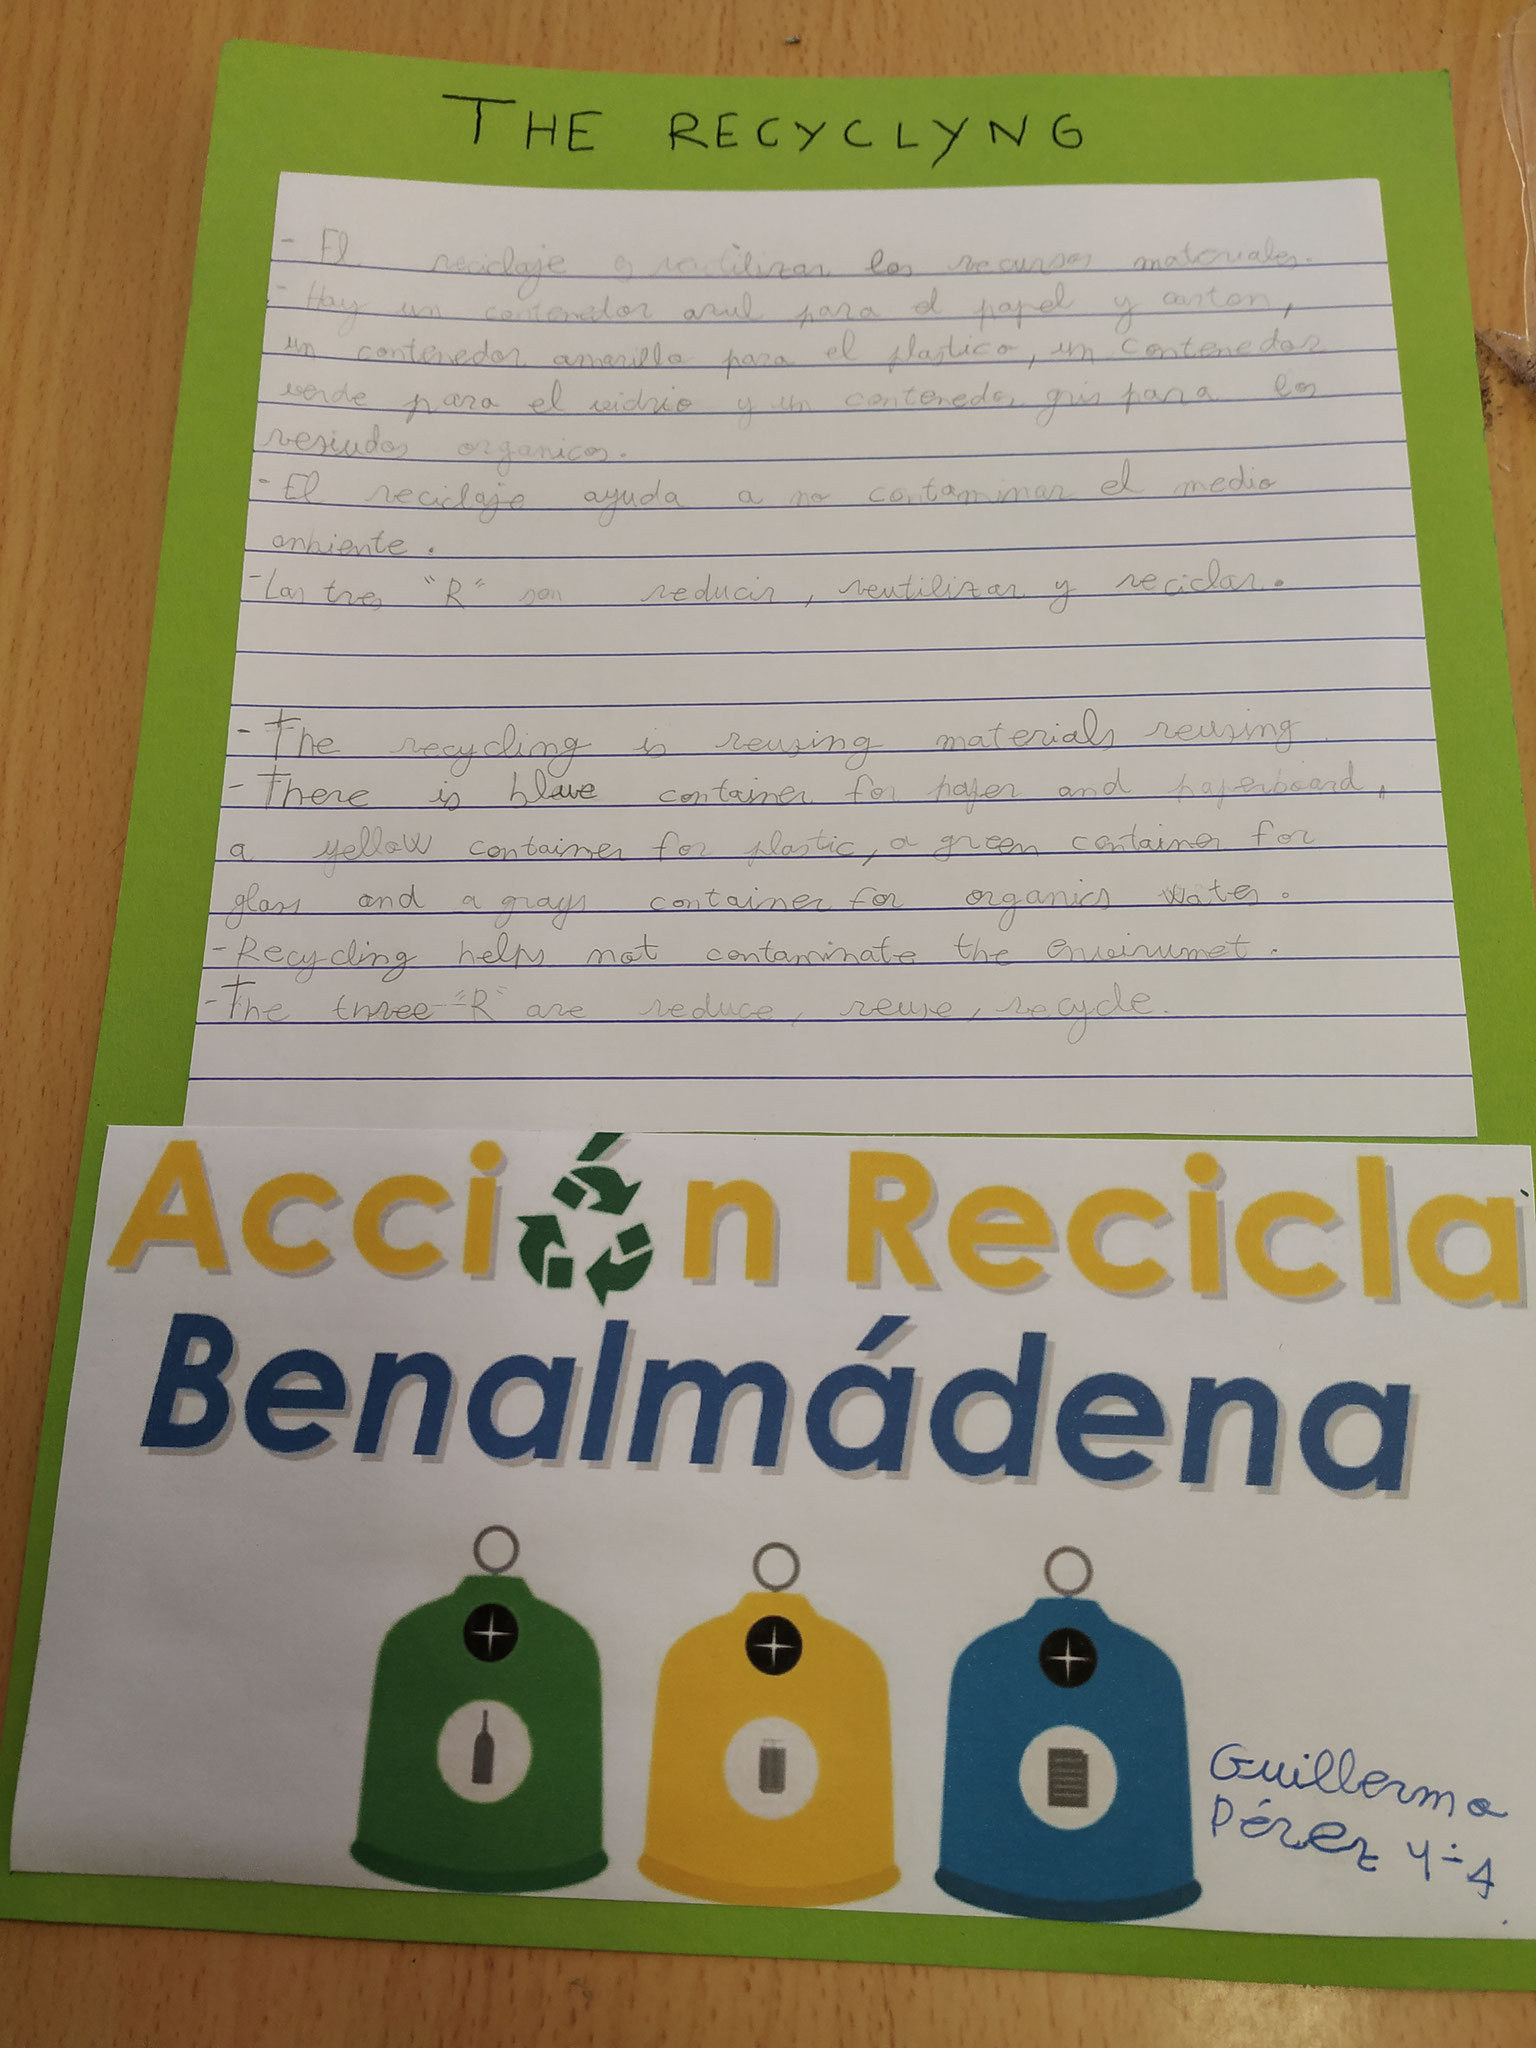 THE RECYCLYNG
- El reciclaje es reutilizar los recursos materiales.
- Hay un contenedor azul para el papel y carton,
un contenedor amarillo para el plastico, un contenedor
verde para el vidrio y un contenedor gris para los
resiudos organicos.
- El reciclaje ayuda a no contaminar el medio
anbiente.
- Las tres "R" son reducir, reutilizar y reciclar.
- The recycling is reusing materials reusing
- There is blave container for paper and paperboard,
a yellow container for plastic, a green container for
glass and a grays container for organics wates.
- Recycling helps not contaminate the enveirumet.
- The three "R" are reduce, reuse, recycle.
Acción Recicla
Benalmádena
Guillermo
Pérez 4-A